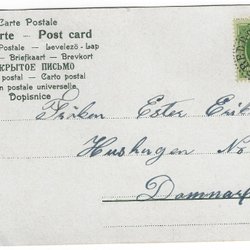 Carte Postale
arte - Post card
Postale - Levelező-Lap
- Briefkaart - Brevkort
КРЫТОЕ ПИСЬМО
postal - Carto postal
on postale universelle
Dopisnice
Fröken Ester Erik
Hushagen No
Domnarf